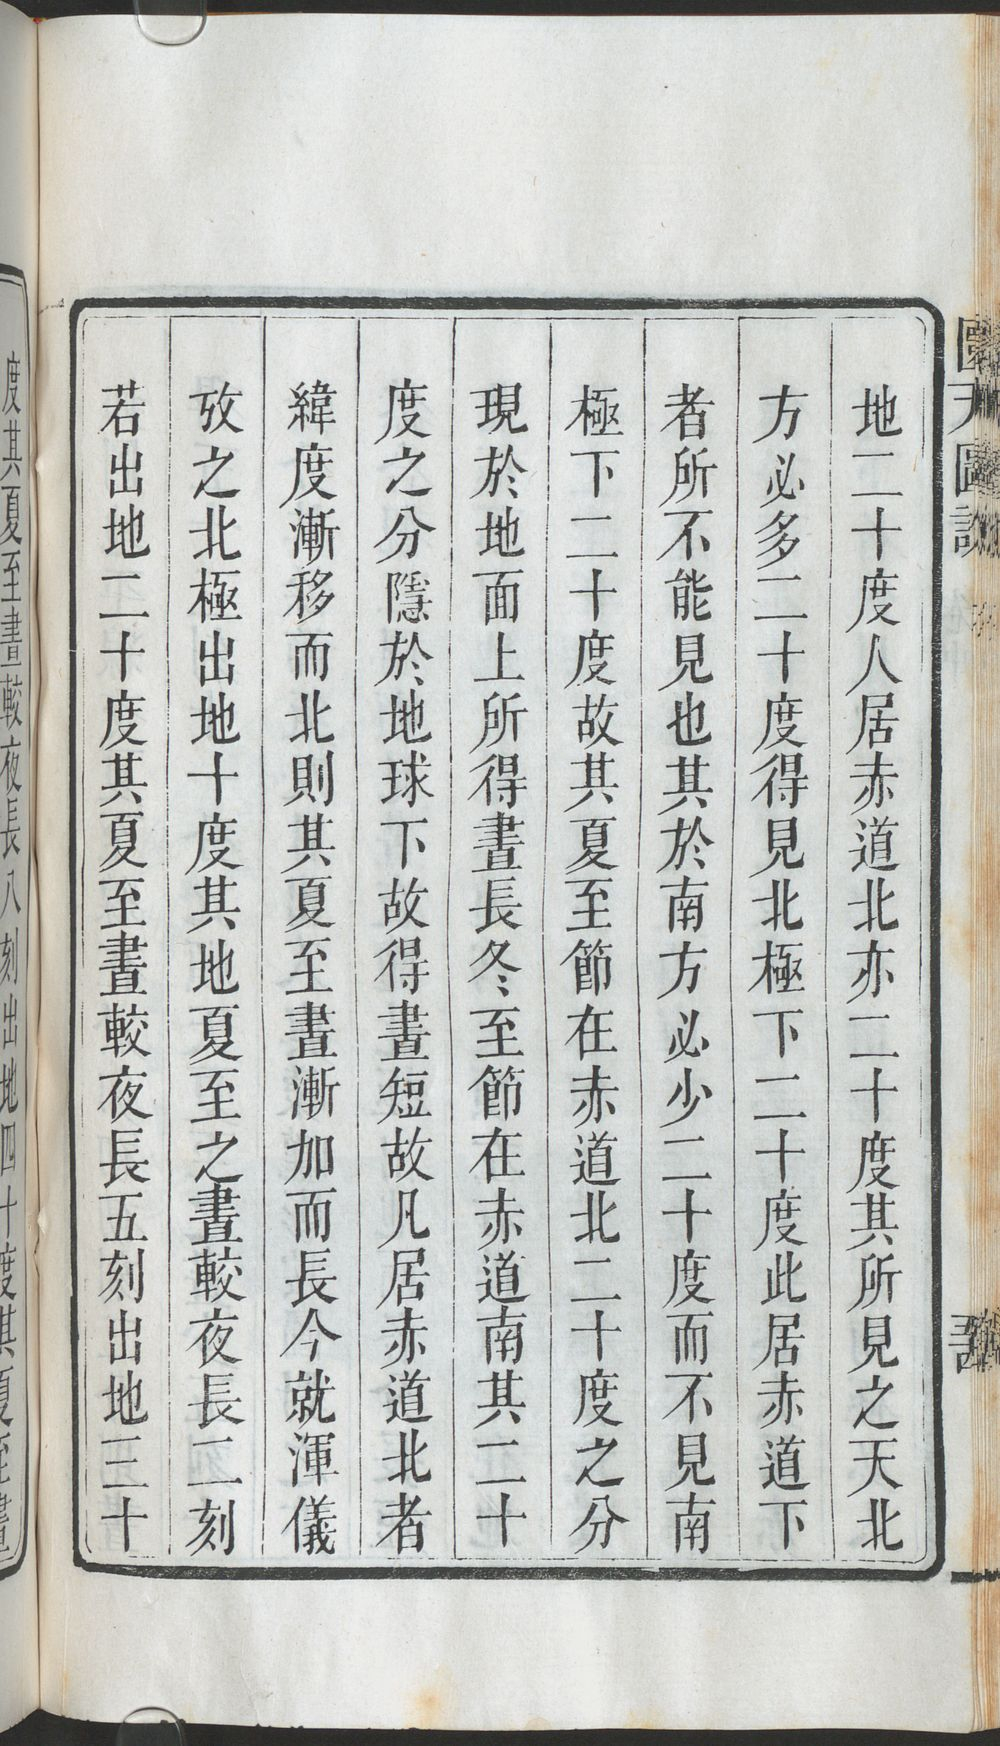 地二十度人居赤道北亦二十度其所見之天北
方必多二十度得見北極下二十度此居赤道下
者所不能見也其於南方必少二十度而不見南
極下二十度故其夏至節在赤道北二十度之分
現於地面上所得晝長冬至節在赤道南其二十
度之分隱於地球下故得晝短故凡居赤道北者
緯度漸移而北則其夏至晝漸加而長今就渾儀
攷之北極出地十度其地夏至之晝較夜長二刻
若出地二十度其夏至晝較夜長五刻出地三十
度其夏至晝較夜長八刻出地四十度其夏至晝